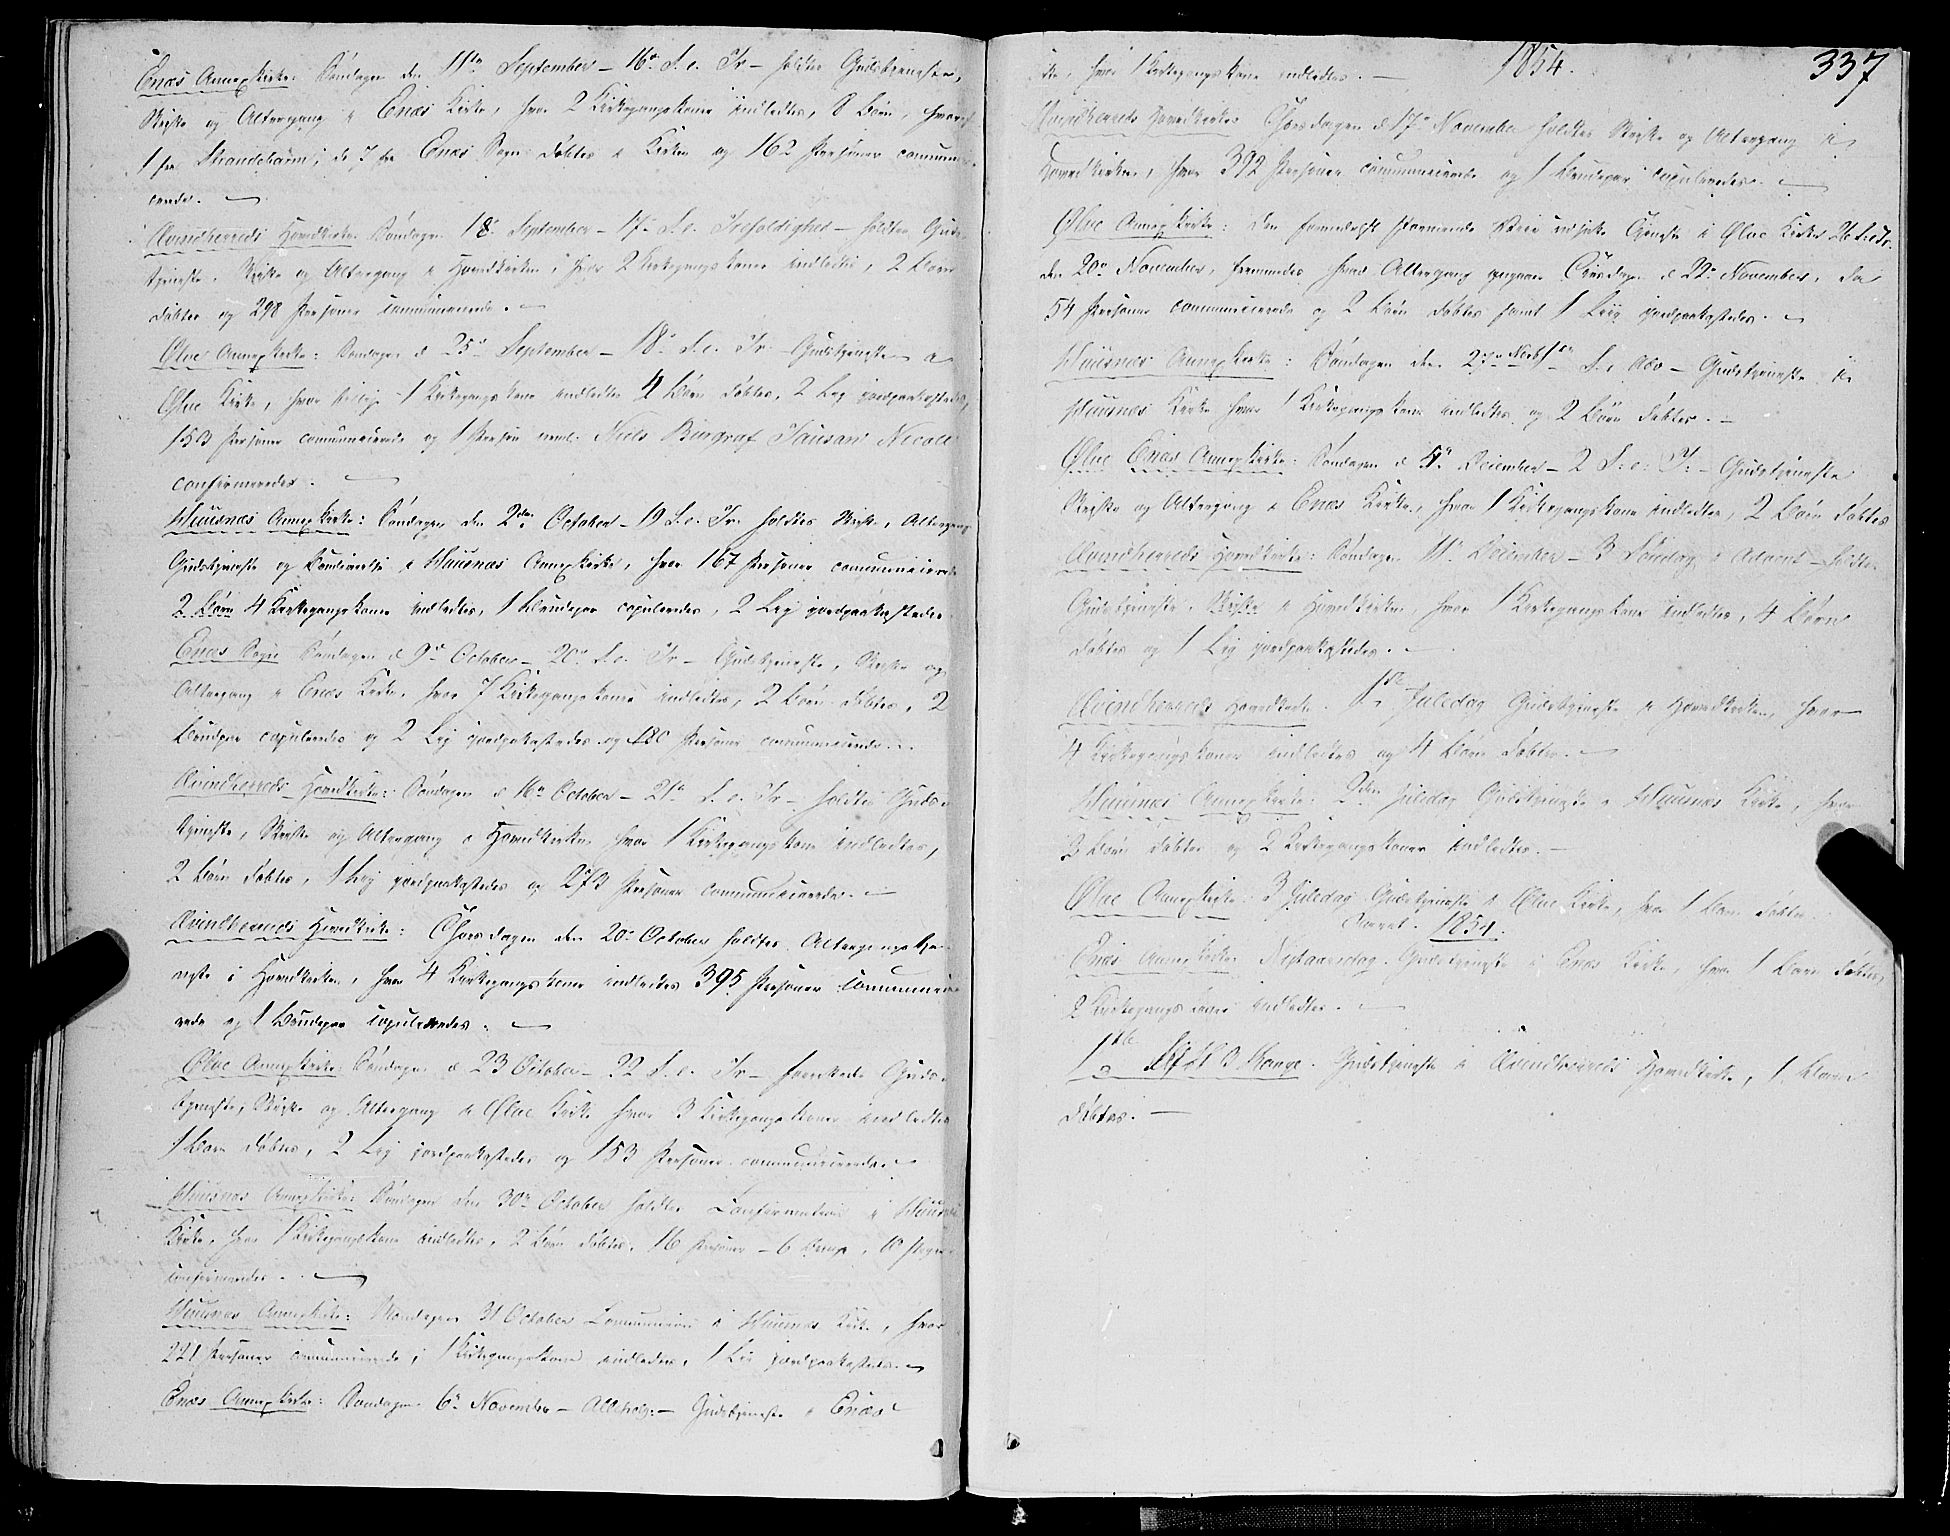 Enæs Annexkirke: Søndagen den 11te September – 16de S. e. Tr – holdtes Gudstjeneste,
Skrifte og Altergang i Enæs Kirke, hvor 2 Kirkegangskoner indledtes, 8 Børn, hvoraf
1 fra Strandebarm, de 7 fra Enæs Sogn døbtes i Kirken og 162 Personer communi-
cerede. –
Qvindherreds Hovedkirke Søndagen 18de September – 17de S. e. Trefoldighed – holdtes Guds-
tjeneste, Skrifte og Altergang i Hovedkirken, hvor 2 Kirkegangskoner indledtes, 2 Børn
døbtes og 298 Personer communicerede. –
Ølve Annexkirke: Søndagen d 25de September – 18de S. e. Tr. – Gudstjeneste i
Ølve Kirke, hvor 1 Kirkegangskone indledtes 4 Børn døbtes, 2 Lig jordpaakastedes,
153 Personer communicerede og 1 Person neml. Niels
confirmeredes. –
Huusnæs Annexkirke: Søndagen den 2den October – 19 S. e. Tr. holdtes Skrifte, Altergang
Gudstjeneste i Huusnæs Annexkirke, hvor 167 Personer communicerede
2 Børn 4 Kirkegangskoner indledtes, 1 Brudepar copuleredes, 2 Lig jordpaakastedes.
Enæs Sogn Søndagen d 9de October – 20de S. e. Tr – Gudstjeneste, Skrifte og
Altergang i Enæs Kirke, hvor 7 Kirkegangskoner indledtes, 2 Børn døbtes, 2
Brudepar copuleredes og 2 Lig jordpaakastedes og Personer communicerede.
Qvindherreds Hovedkirke: Søndagen d 16de October – 21de S. e. Tr – holdtes Guds-
tjeneste, Skrifte og Altergang i Hovedkirken hvor 1 Kirkegangskone indledtes,
2 Børn døbtes, 1 Lig jordpaakastedes og 273 Personer communicerede. –
Qvindherreds Hovedkirke: Thorsdagen den 20de October holdtes Altergangstje-
neste i Hovedkirken, hvor 4 Kirkegangskoner indledtes 395 Personer communice-
rede og 1 Brudepar copuleredes. –
Ølve Annexkirke: Søndagen d 23 October – 22 S. e. Tr – Guds-
tjeneste, Skrifte og Altergang i Ølve Kirke hvor 3 Kirkegangskoner indledtes
1 Barn døbtes, 2 Lig jordpaakastedes og 153 Personer communicerede. –
Huusnæs Annexkirke: Søndagen den 30de October holdtes Confirmation i Huusnæs
Kirke, hvor 1 Kirkegangskone indledtes, 2 Børn døbtes, 16 Personer – 6 Drenge, 10 Piger
confirmeredes. –
Huusnæs Annexkirke: Mandagen 31 October Communion i Huusnæs Kirke, hvor
221 Personer communicerede, 1 Kirkegangskone indledtes, 1 Lig jordpaakastedes. –
Enæs Annexkirke: Søndagen 6te November – Allehelg: – Gudstjeneste i Enæs
1854.
337
Kirke, hvor 1 Kirkegangskone indledtes. –
Qvindherreds Hovedkirke Thorsdagen d 17de November holdtes Skrifte og Altergang i
Hovedkirken, hvor 392 Personer communicerede og 1 Brudepar copuleredes. –
Ølve Annexkirke: Den formedelst stormende Veir udsatte Tjeneste i Ølve Kirke
den 20de November, hvad Altergang angaaer Tirsdagen d 22de November, da
54 Personer communicerede og 2 Børn døbtes samt 1 Liig jordpaakastedes. –
Huusnæs Annexkirke: Søndagen den 27de Novbr 1ste S. i Adv – Gudstjeneste i
Huusnæs Kirke hvor 1 Kirkegangskone indledtes og 2 Børn døbtes. –
Ølve Enæs Annexkirke: Søndagen d 4de December – 2 S. – Gudstjeneste
Skrifte og Altergang i Enæs Kirke, hvor 1 Kirkegangskone indledtes, 2 Børn døbtes
Qvindherreds Hovedkirke: Søndagen 11te December – 3 Søndag i Advent – holdtes
Gudstjeneste, Skrifte i Hovedkirken, hvor 1 Kirkegangskone indledtes, 4 Børn
døbtes og 1 Lig jordpaakastedes. –
Qvindherreds Hovedkirke. 1ste Juledag Gudstjeneste i Hovedkirken, hvor
4 Kirkegangskoner indledtes og 4 Børn døbtes. –
Huusnæs Annexkirke: 2den Juledag Gudstjeneste i Huusnæs Kirke, hvor
3 Børn døbtes og 2 Kirkegangskoner indledtes. –
Ølve Annexkirke: 3 Juledag Gudstjeneste i Ølve Kirke, hvor 1 Barn døbtes.
Aaret 1854.
Enæs Annexkirke Nytaarsdag. Gudstjeneste i Enæs Kirke, hvor 1 Barn døbtes,
2 Kirkegangskoner indledtes. –
1ste 3 Konge. Gudstjeneste i Qvindherreds Hovedkirke, 1 Barn
døbtes. –